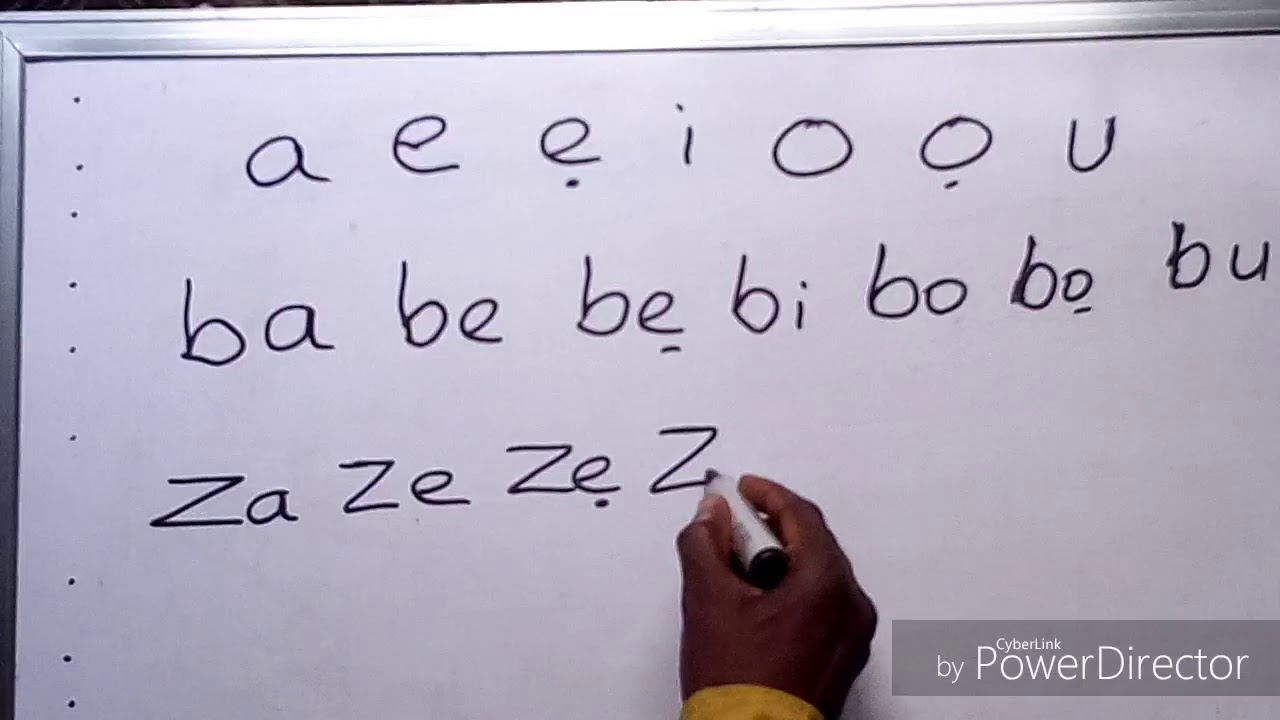 a e ẹ i o ọ u
ba be bẹ bi bo bọ bu
za ze zẹ z
CyberLink
by PowerDirector